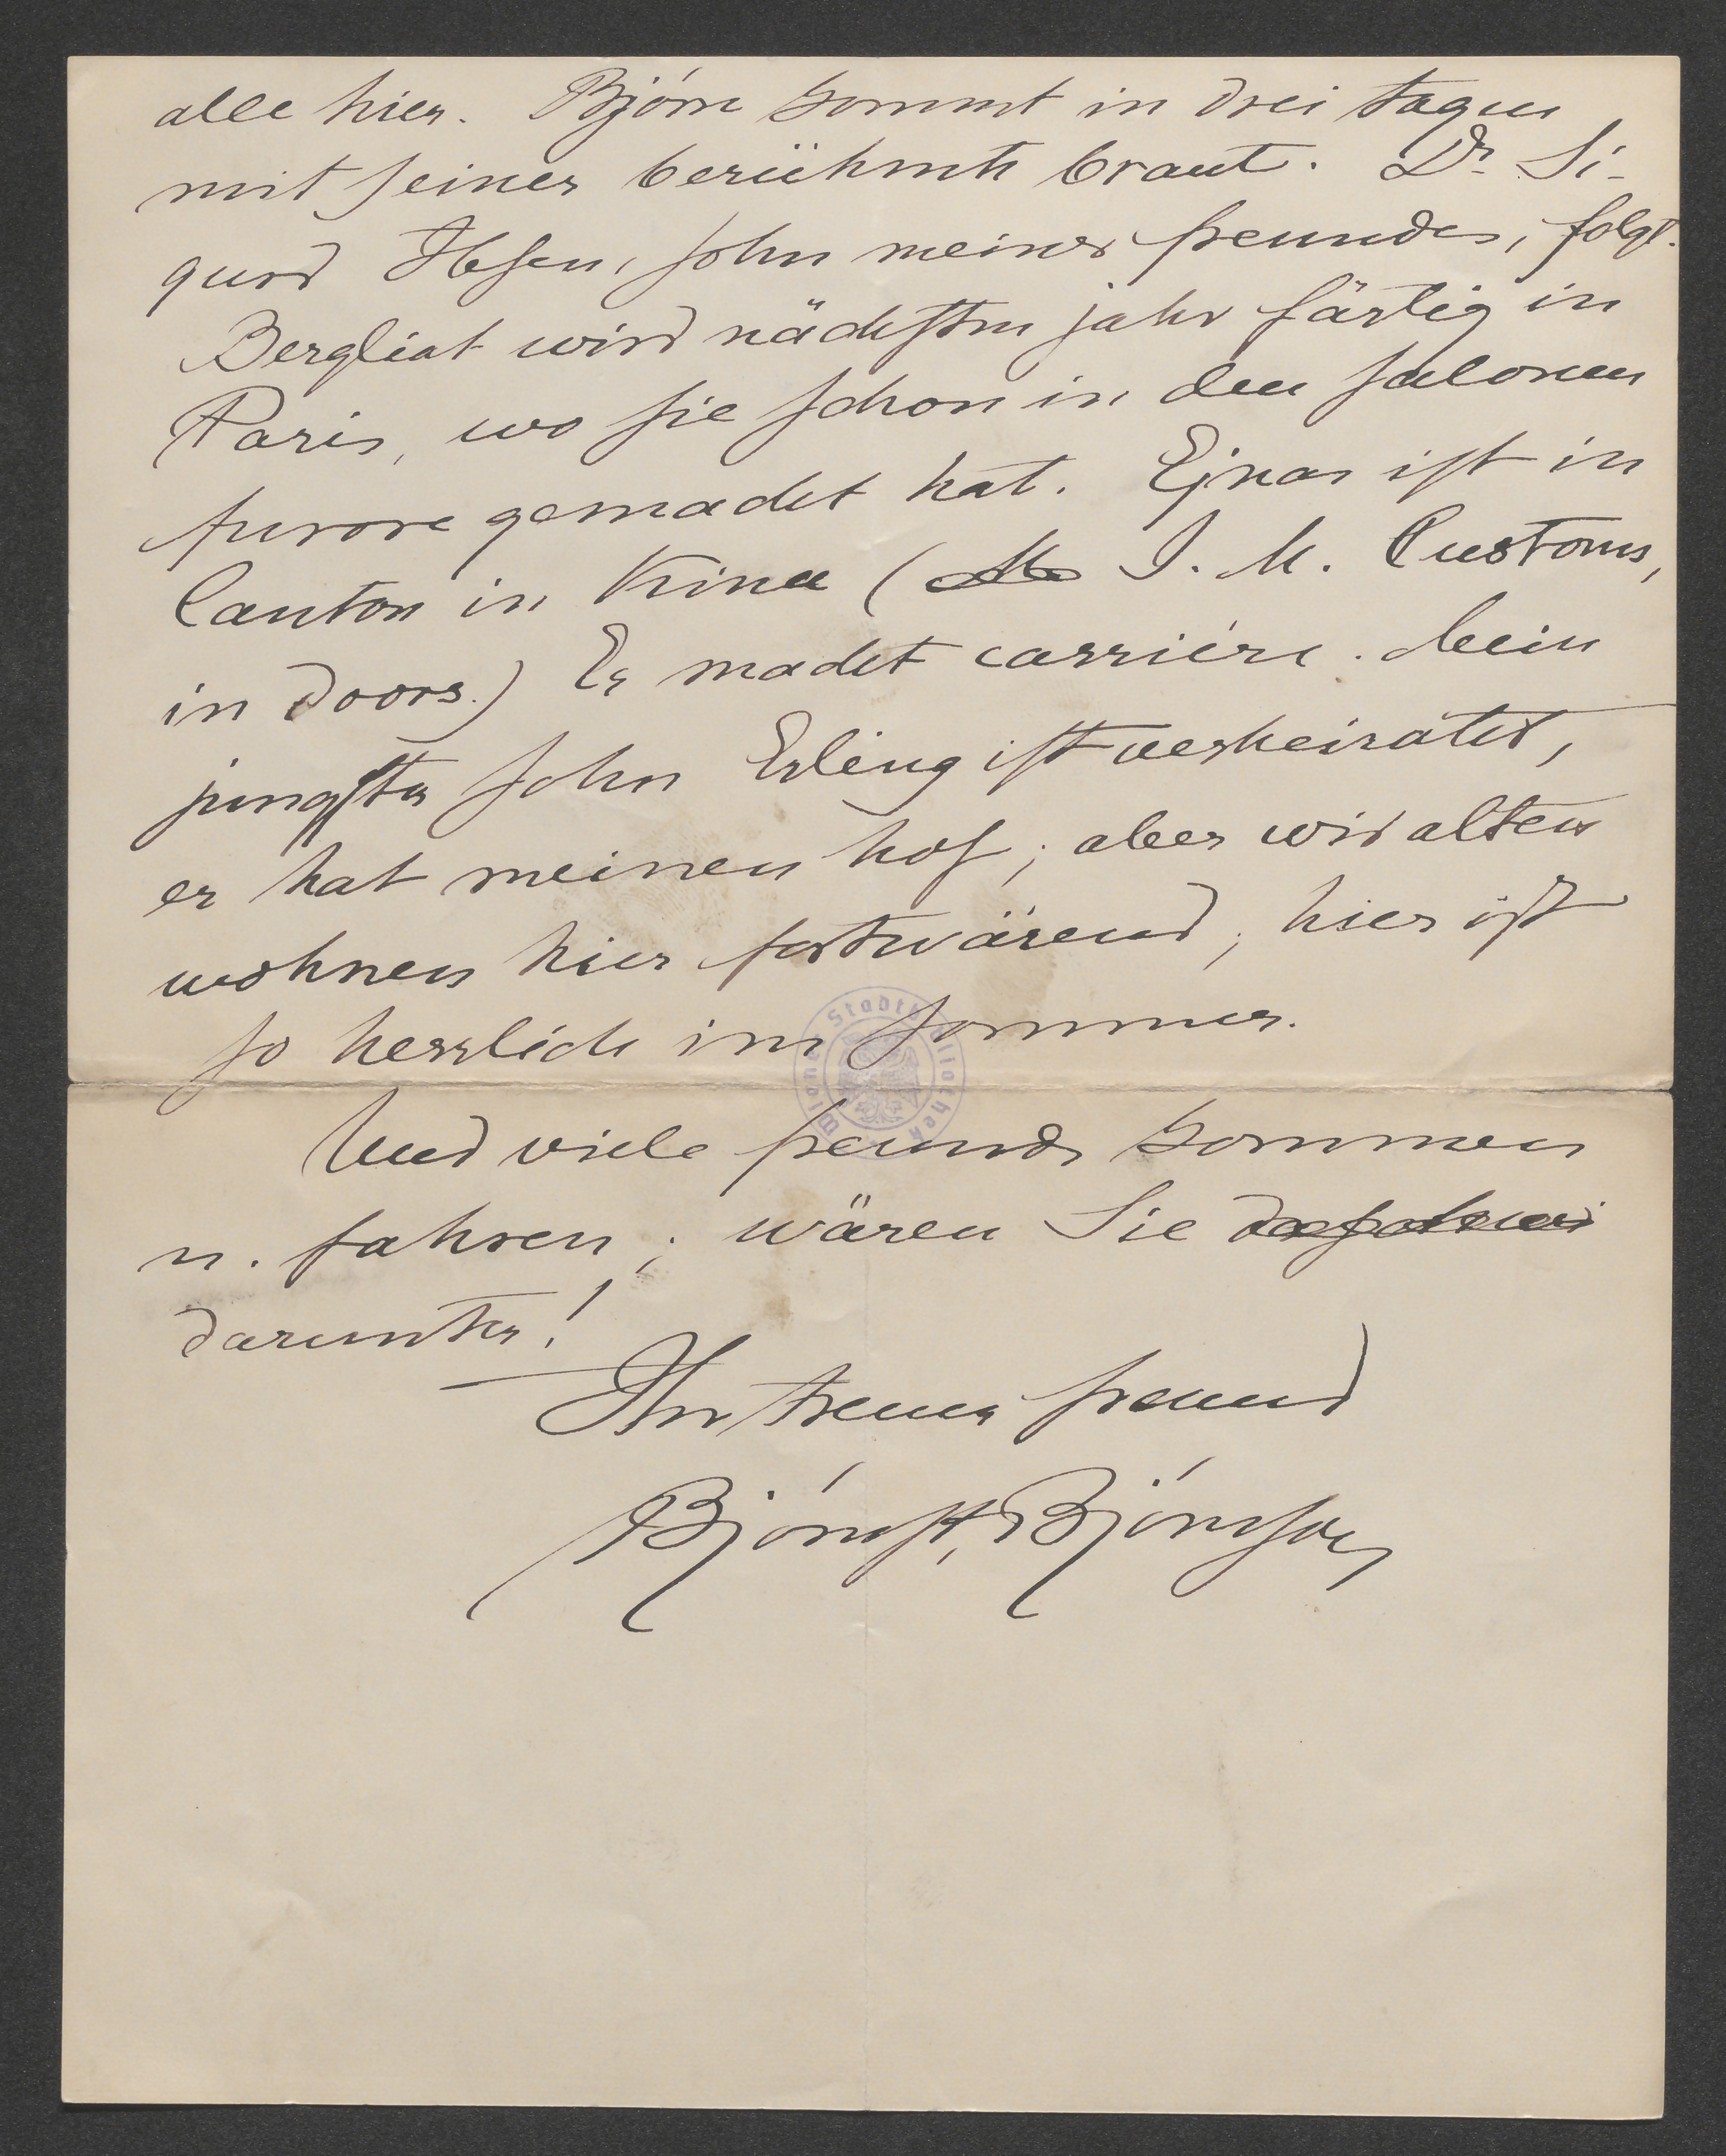 alle hier. Bjørn kommt in drei tagen
mit seiner berühmte braut. Dr. Si-
gurd Ibsen, sohn meines freundes, folgt.
Bergliot wird nächsten jahr färtig in
Paris, wo sie schon in den salonen
furore gemacht hat. Ejnar ist in
Canton in Kina ( I. M. Customs,
in doors.) Er macht carriére. Mein
jungster sohn Erling ist verheiratet,
er hat meinen hof; aber wir alten
wohnen hier fortwärend; hier ist
so herrlich im sommer.
Und viele freunde kommen
u. fahren; wären Sie
darunter!
Ihr treuer freund
Bjørnst. Bjørnson
Wiener Stadtbibliothek